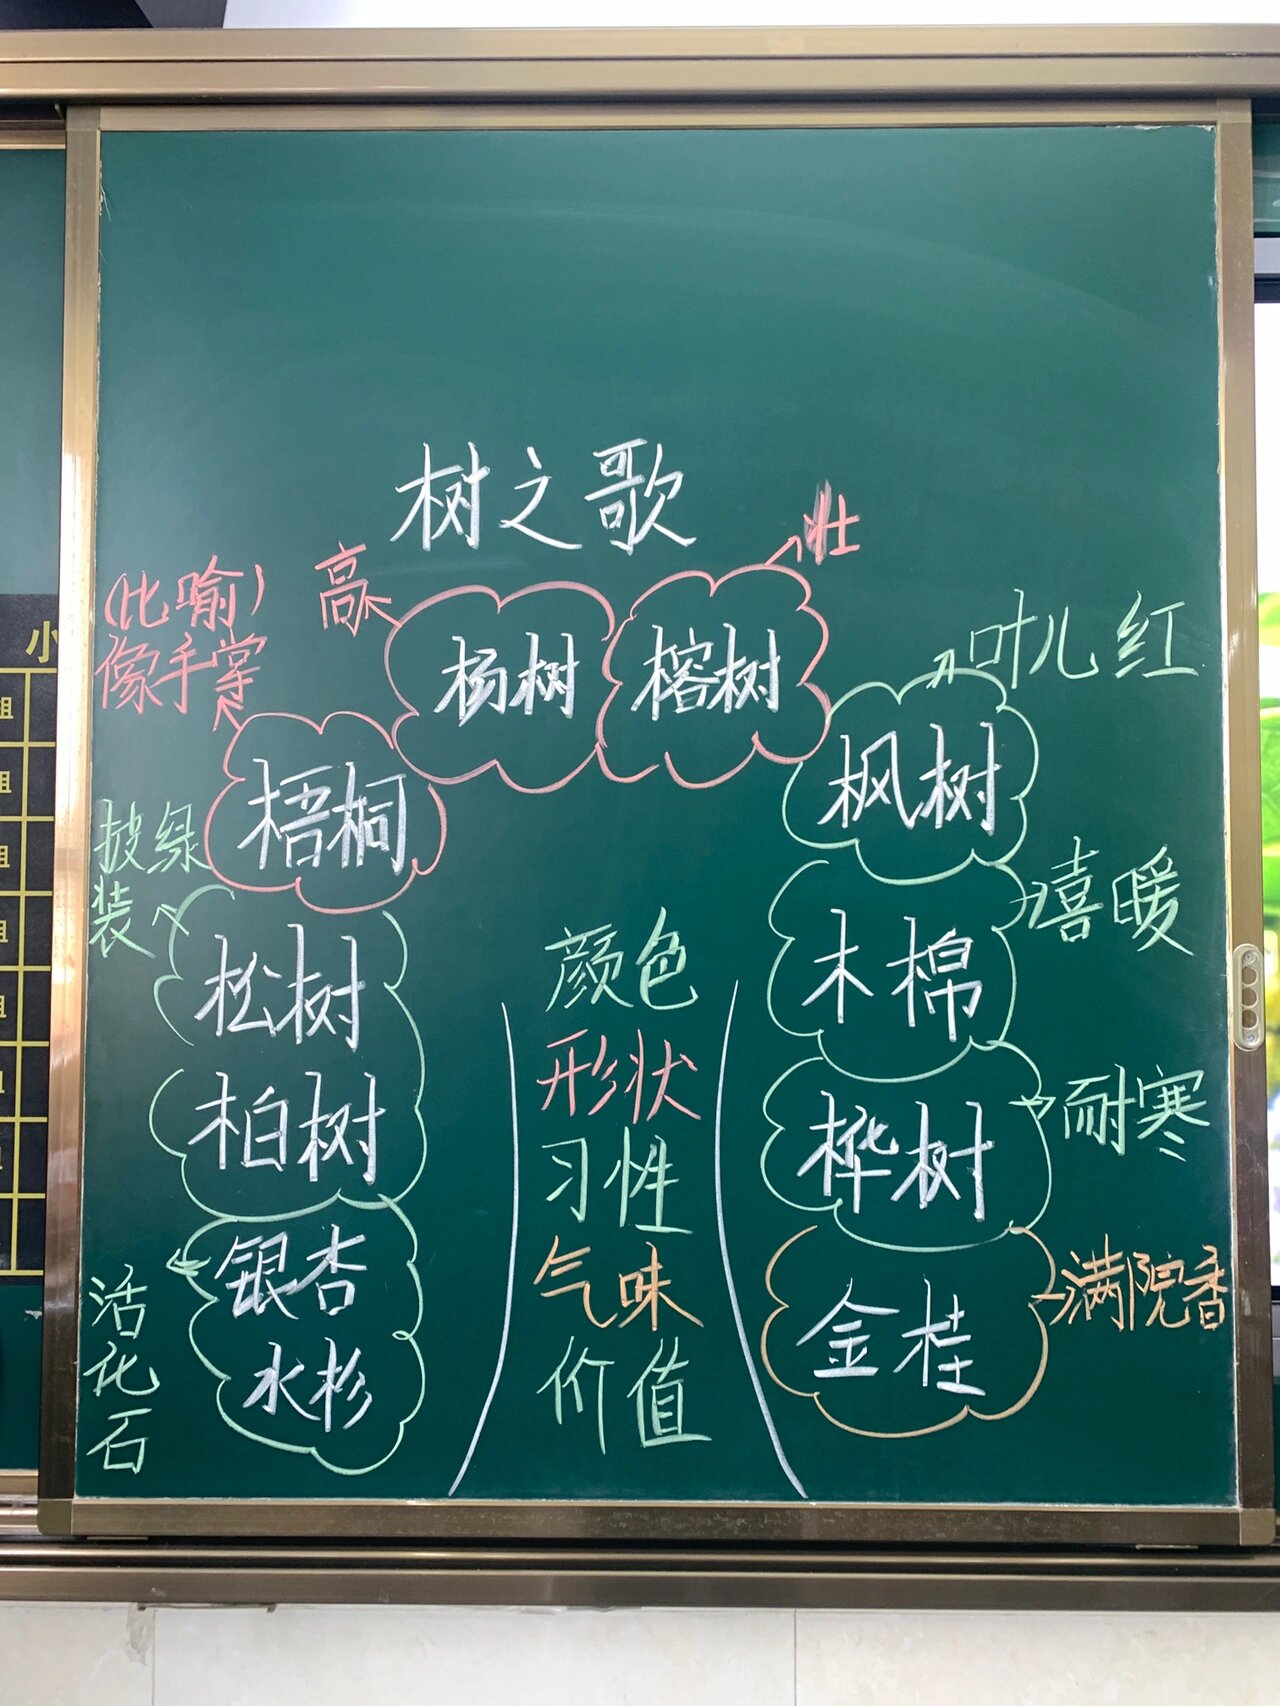 树之歌
高
壮
杨树
榕树
(比喻)
像手掌
梧桐
叶儿红
枫树
披绿
装
松树
柏树
喜暖
木棉
耐寒
桦树
活化石
银杏
水杉
满院香
金桂
颜色
形状
习性
气味
价值
小
组
组
组
组
组
组
组